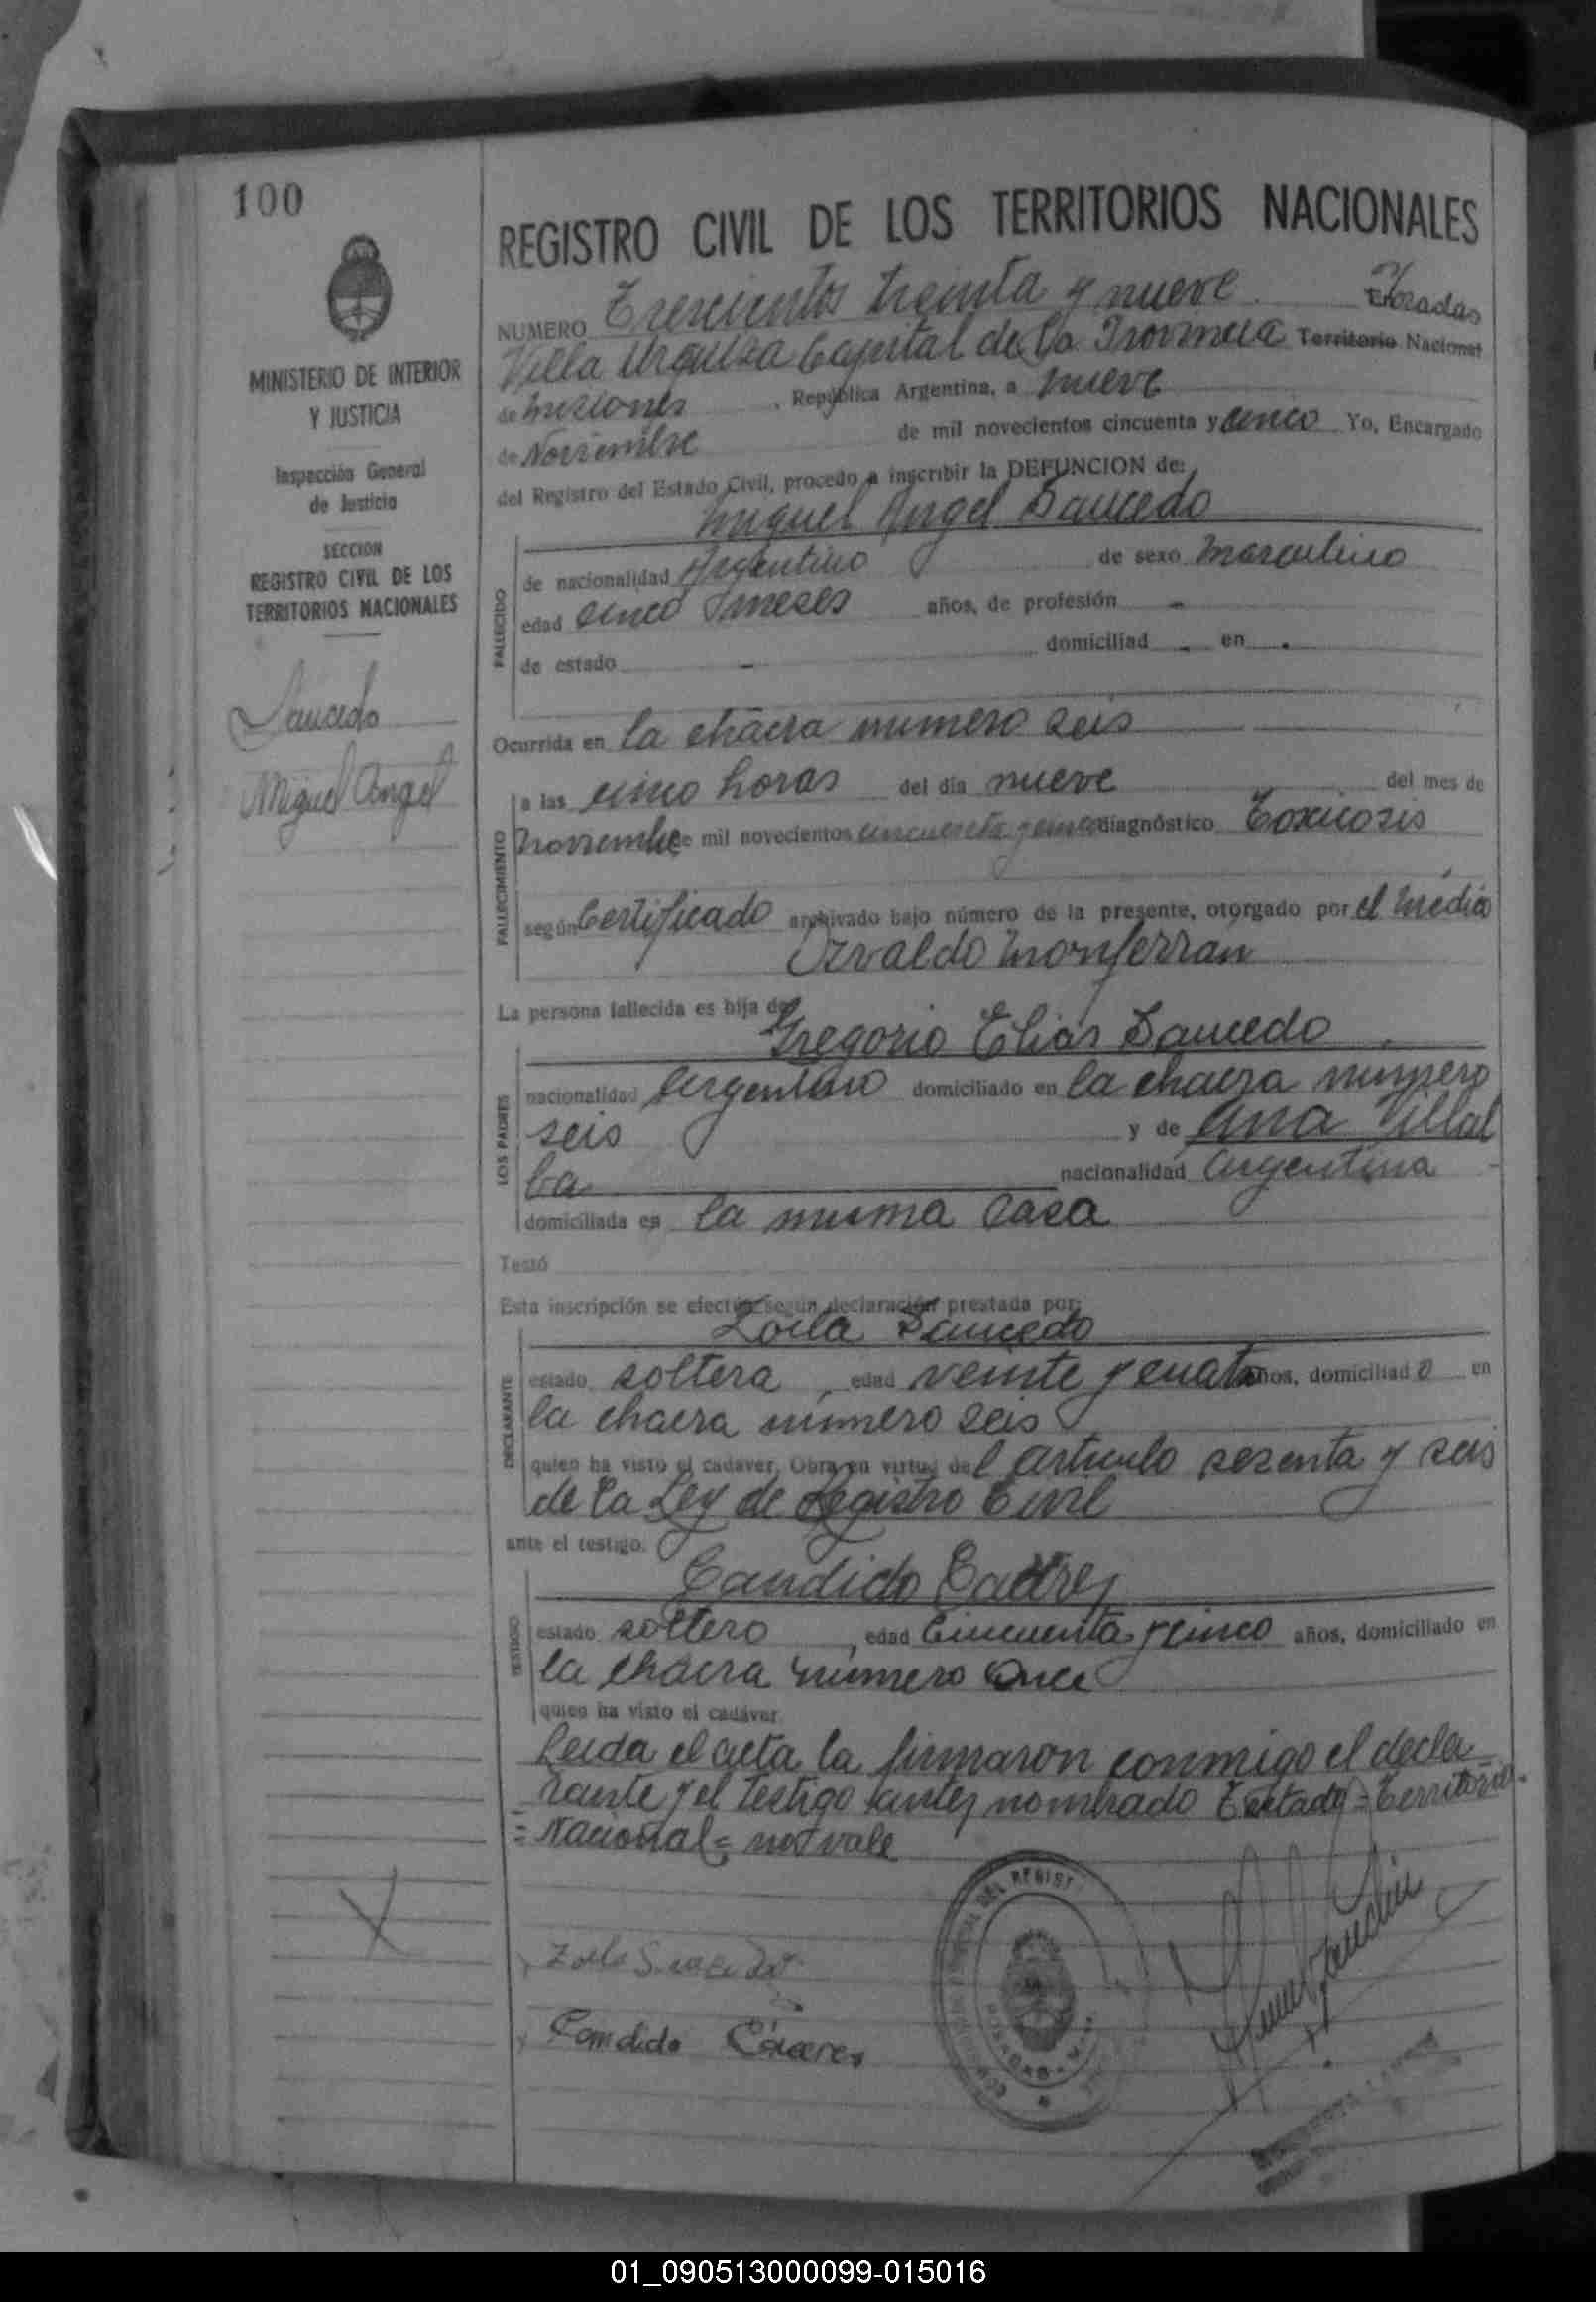 100
MINISTERIO DE INTERIOR
Y JUSTICIA
Inspección General
de Justicia
SECCION
REGISTRO CIVIL DE LOS
TERRITORIOS NACIONALES
Saucedo
Miguel Angel
REGISTRO CIVIL DE LOS TERRITORIOS NACIONALES
NUMERO Trescientos treinta y nueve. Posadas
Villa Urquiza Capital de la Provincia Territorio Nacional
de Misiones, República Argentina, a nueve
de Noviembre de mil novecientos cincuenta y cinco Yo, Encargado
del Registro del Estado Civil, procedo a inscribir la DEFUNCION de:
Miguel Angel Saucedo
FALLECIDO
de nacionalidad Argentino de sexo masculino
edad cinco meses años, de profesión -
de estado - domiciliad - en -
Ocurrida en la chacra numero seis
FALLECIMIENTO
a las cinco horas del día nueve del mes de
noviembre de mil novecientos cincuenta y cinco diagnóstico Toxicosis
según Certificado archivado bajo número de la presente, otorgado por el médico
Osvaldo Monferran
La persona fallecida es hija de:
Gregorio Elias Saucedo
LOS PADRES
nacionalidad Argentino domiciliado en la chacra numero
seis y de Ana Villal
ba nacionalidad Argentina
domiciliada en la misma casa
Testó
Esta inscripción se efectúa según declaración prestada por:
Zoila Saucedo
DECLARANTE
estado soltera, edad veinte y cuatro años, domiciliad o en
la chacra número seis
quien ha visto el cadaver, Obra en virtud del artículo sesenta y seis
de la Ley de Registro Civil
ante el testigo.
Candido
TESTIGO
estado soltero, edad Cincuenta y cinco años, domiciliado en
la chacra número Once
quien ha visto el cadáver
Leida el acta la firmaron conmigo el decla
rante y el testigo antes nombrado Testado = Territorio
= Nacional = no vale
Candido Cáceres
DEL REGIST
01_090513000099-015016